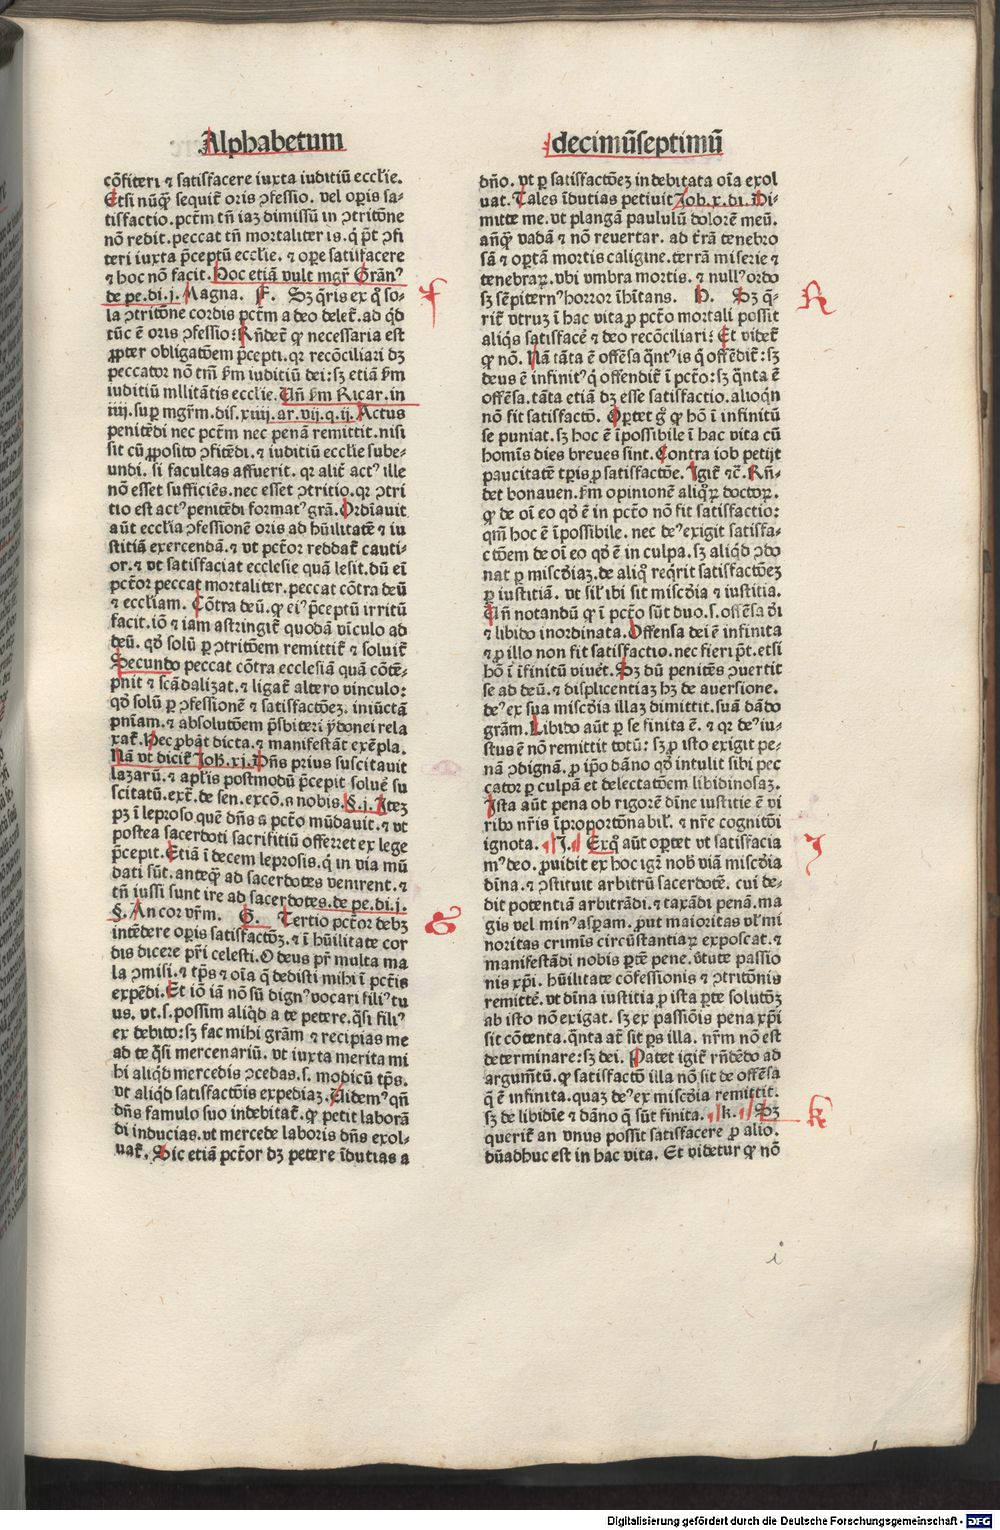 Alphabetum
cōfiteri ⁊ satisfacere iuxta iuditiū eccľie.
Etsi nūqȝ sequit̄ oris ↄfessio. vel oꝑis sa-
tisfactio. pctm̄ tñ iaȝ dimissū in ↄtritōne
nō redit. peccat tñ mortaliter is. q̇ p̄t ↄfi
teri iuxta p̄ceptū eccľie. ⁊ oꝑe satisfacere
⁊ hoc nō facit. Hoc etiā vult mgr̄ Grānꝰ
de pe. di. j. Magna. F. Sȝ q̄ris ex q̊ so-
la ↄtritōne cordis pctm̄ a deo delet̄. ad qͥd
tūc ē oris ↄfessio: Rñdet̄ ꝙ necessaria est
ꝓpter obligatōem p̄cepti. qꝛ recōciliari dȝ
peccator nō tm̄ ẜm iuditiū dei: sȝ etiā ẜm
iuditiū militātis ecclie. Uñ ẜm Ricar. in
iiij. suꝑ mgr̄m. dis. xiiij. ar. vij. q. ij. Actus
penitēdi nec pctm̄ nec penā remittit. nisi
sit cū ꝓposito ↄfitēdi. ⁊ iuditiū ecclie sube-
undi. si facultas affuerit. qꝛ alit̄ actꝰ ille
nō esset sufficiēs. nec esset ↄtritio. qꝛ ↄtri
tio est actꝰ penitēdi formatꝰ grā. Ordīauit
aūt eccľia ↄfessionē oris ad hūilitatē ⁊ iu
stitiā exercendā. ⁊ vt pctōr reddat̄ cauti-
or. ⁊ vt satisfaciat ecclesie quā lesit. dū eī
pctōr peccat mortaliter. peccat cōtra deū
⁊ eccľiam. Cōtra deū. ꝙ eiꝰ p̄ceptū irritū
facit. iō ⁊ iam astringit̄ quodā vīculo ad
deū. qď solū ꝑ ↄtritōem remittit̄ ⁊ soluit̄
Secundo peccat cōtra ecclesiā quā cōtē-
pnit ⁊ scādalizat. ⁊ ligat̄ altero vinculo:
qď solū ꝑ ↄfessionē ⁊ satisfactōeȝ. iniūctā
pn̄iam. ⁊ absolutōem p̄sbiteri ydonei rela
xat̄. Hec ꝓbāt dicta. ⁊ manifestāt exēpla.
Nā vt dicit̄ Joh. xj. Dñs prius suscitauit
lazarū. ⁊ apľis postmodū p̄cepit solue̅ su
scitatū. ext̄. de sen. excō. a nobis. §. j. Iteȝ
pȝ ī leproso quē dñs a pctō mūdauit. ⁊ vt
postea sacerdoti sacrifitiū offerret ex lege
p̄cepit. Etiā ī decem leprosis. q̇ in via mū
dati sūt. anteqȝ ad sacerdotes venirent. ⁊
tñ iussi sunt ire ad sacerdotes. de pe. di. j.
§. An cor vr̄m. G. Tertio pctōr debȝ
intēdere oꝑis satisfactōȝ. ⁊ ī hūilitate cor
dis dicere pr̄i celesti. O deus pr̄ multa ma
la ↄmisi. ⁊ tp̄s ⁊ oīa q̄ dedisti mihi ī pctīs
expēdi. Et iō iā nō sū dignꝰ vocari filiꝰ tu
us. vt. s. possim aliqͥd a te petere. q̄si filiꝰ
ex debito: sȝ fac mihi grām ⁊ recipias me
ad te q̄si mercenariū. vt iuxta merita mi
hi aliqͥd mercedis ↄcedas. s. modicū tp̄s.
vt aliqͥd satisfactōis expediaȝ. Uidemꝰ qñ
dñs famulo suo indebitat̄. ꝙ petit laborā
di inducias. vt mercede laboris dñs exol-
uat̄. Sic etiā pctōr dȝ petere īdutias a
decimūseptimū
dño. vt ꝑ satisfactōeȝ indebitata oīa exol
uat. Tales īdutias petiuit Job. x. di. Di-
mitte me. vt plangā paululū dolorē meū.
añqȝ vadā ⁊ nō reuertar. ad t̄rā tenebro
sā ⁊ oꝑtā mortis caligine. terrā miserie ⁊
tenebraꝝ. vbi vmbra mortis. ⁊ nullꝰ ordo
sȝ sēpiternꝰ horror īhītans. H. Sȝ q̄-
rit̄ vtruȝ ī hac vita ꝓ pctō mortali possit
aliqͥs satisface̅ ⁊ deo recōciliari: Et videt̄
ꝙ nō. Nā tāta ē offēsa q̄ntꝰ is q̄ offēdit̄: sȝ
deus ē infinitꝰ q̇ offendit̄ ī pctō: sȝ q̄nta ē
offēsa. tāta etiā dȝ esse satisfactio. alioqͥn
nō fit satisfactō. Oꝑtet g̊ ꝙ hō ī infinitū
se puniat. sȝ hoc ē īpossibile ī hac vita cū
homīs dies breues sint. Contra iob petijt
paucitatē tꝑis ꝓ satisfactōe. Igit̄ ⁊c̄. Rñ-
det bonauen. ẜm opinionē aliqͦꝝ doctoꝝ.
ꝙ de oī eo qď ē in pctō nō fit satisfactio:
qm̄ hoc ē īpossibile. nec deꝰ exigit satisfa-
ctōem de oī eo qď ē in culpa. sȝ aliqͥd ↄdo
nat ꝑ misc̄diaȝ. de aliqͦ reqͥrit satisfactōeȝ
ꝑ iustitiā. vt siľ ibi sit misc̄dia ⁊ iustitia.
Uñ notandū ꝙ ī pctō sūt duo. s. offēsa dī
⁊ libido inordinata. Offensa dei ē infinita
⁊ ꝓ illo non fit satisfactio. nec fieri p̄t. etsi
hō ī īfinitū viuēt. Sȝ dū penitēs ↄuertit
se ad deū. ⁊ displicentiaȝ hȝ de auersione.
deꝰ ex sua misc̄dia illaȝ dimittit. suā dādo
grām. Libido aūt ꝑ se finita ē. ⁊ qꝛ deꝰ iu-
stus ē nō remittit totū: sȝ ꝓ isto exigit pe-
nā ↄdignā. ꝓ ip̄o dāno qď intulit sibi pec
cator ꝑ culpā et delectatōem libidinosaȝ.
Ista aūt pena ob rigorē dīne iustitie ē vi
ribo nr̄is īproportōnabiľ. ⁊ nr̄e cognitōi
ignota. J. Exq̊ aūt oꝑtet vt satisfacia
mꝰ deo. ꝓuidit ex hoc igr̄ nob̄ viā misc̄dia
dīna. ⁊ ↄstituit arbitrū sacerdotē. cui de-
dit potentiā arbitrādi. ⁊ taxādi penā. ma
gis vel minꝰ aspam. ꝓut maioritas vľ mi
noritas crimīs circūstantiaꝝ exposcat. ⁊
manifestādi nobis ꝑtē pene. v̄tute passio
nis xp̄i. hūilitate cōfessionis ⁊ ↄtritōnis
remittē. vt dīna iustitia ꝓ ista ꝑte solutōȝ
ab isto nō exigat. sȝ ex passiōis pena xp̄i
sit cōtenta. q̄nta at̄ sit ꝑs illa. nr̄m nō est
determinare: sȝ dei. Patet igit̄ rñdēdo ad
argum̄tū. ꝙ satisfactō illa nō sit de offēsa
q̄ ē infinita. quaȝ deꝰ ex misc̄dia remittit.
sȝ de libidīe ⁊ dāno q̄ sūt finita. k. Sȝ
querit̄ an vnus possit satisfacere ꝓ alio.
dū adhuc est in hac vita. Et videtur ꝙ nō
f
G
H
J
k
i
Digitalisierung gefördert durch die Deutsche Forschungsgemeinschaft - DFG